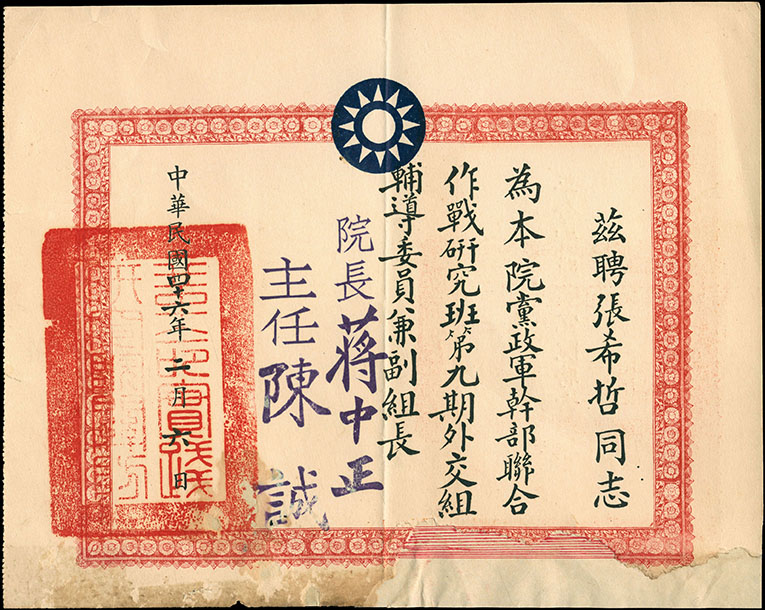 茲聘張希哲同志
為本院黨政軍幹部聯合
作戰研究班第九期外交組
輔導委員兼副組長
院長蔣中正
主任陳誠
中華民國四十六年二月六日